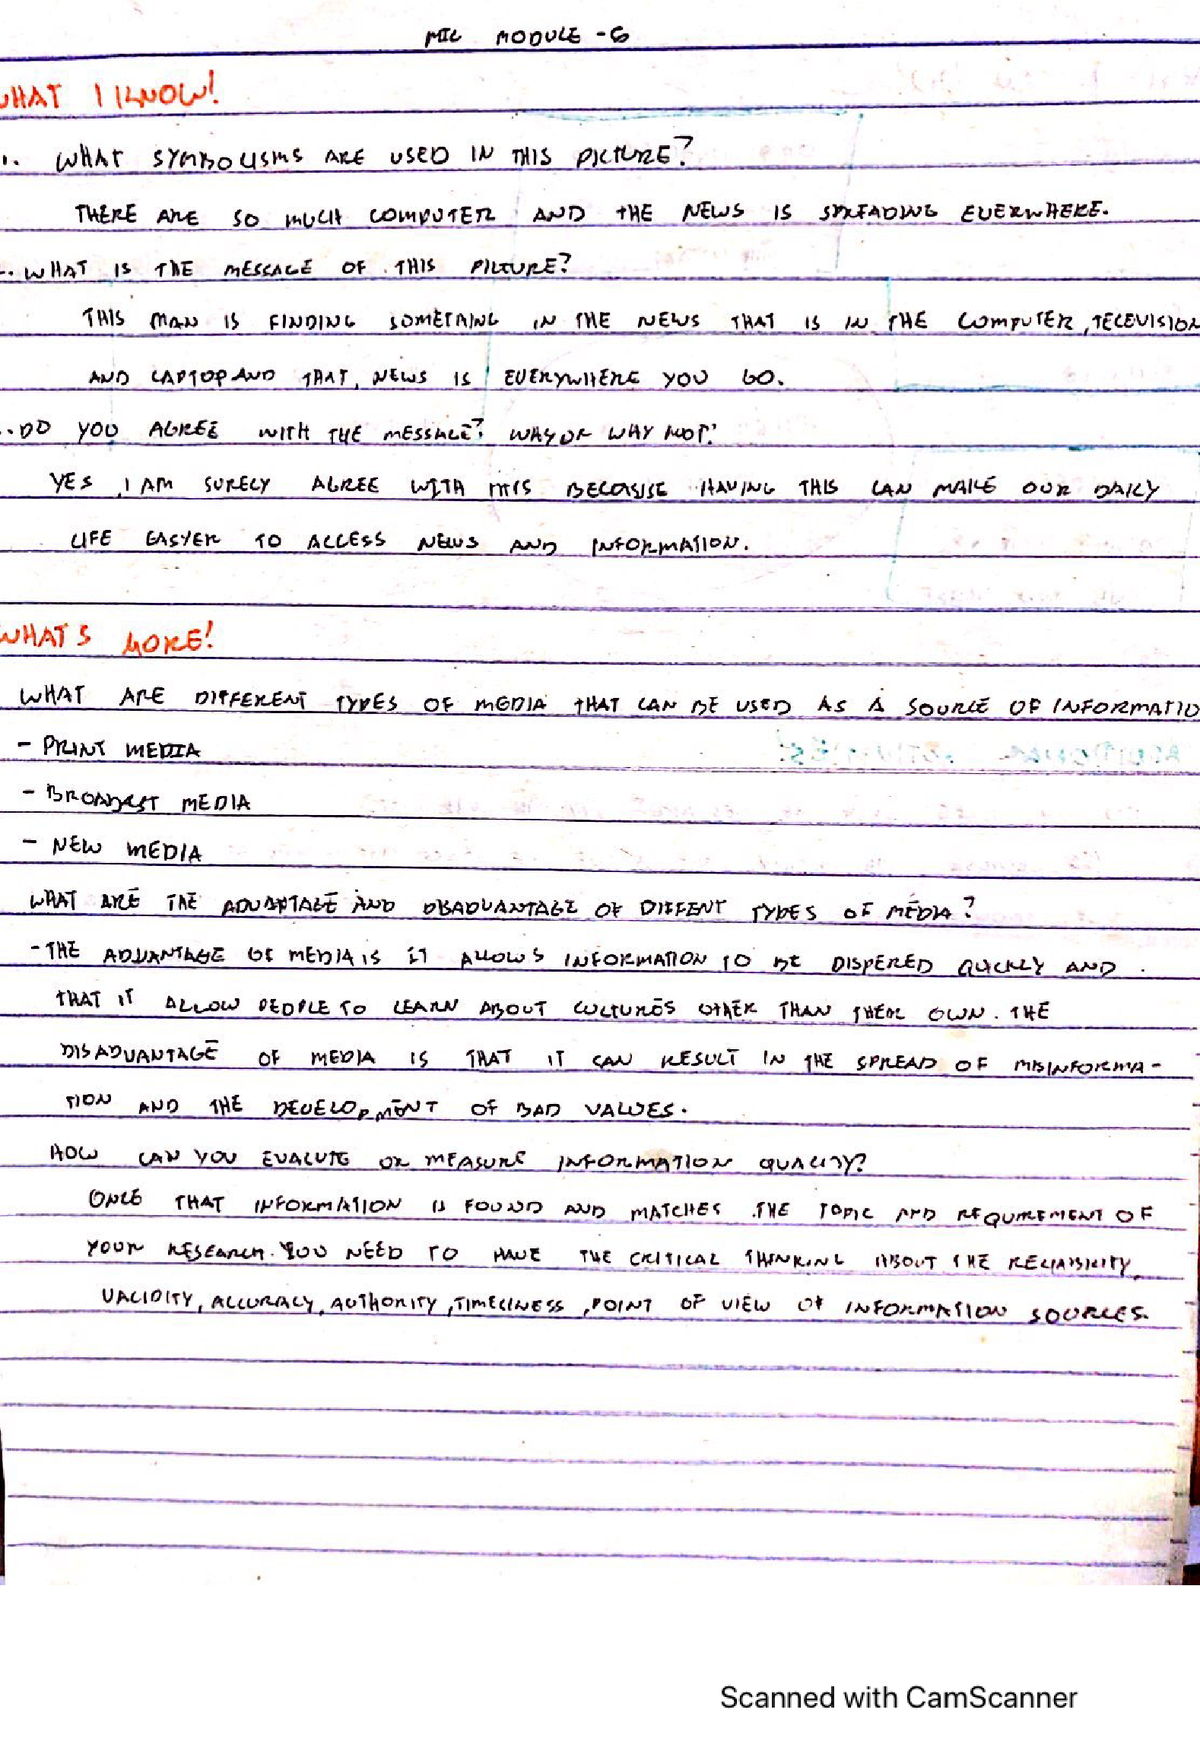 MIL MODULE -6
WHAT I KNOW!
1. WHAT SYMBOLISMS ARE USED IN THIS PICTURE?
THERE ARE SO MUCH COMPUTER AND THE NEWS IS SPREADING EVERWHERE.
. WHAT IS THE MESSAGE OF THIS PICTURE?
THIS MAN IS FINDING SOMETHING IN THE NEWS THAT IS IN THE COMPUTER, TELEVISION
AND LAPTOP AND THAT, NEWS IS EVERYWHERE YOU GO.
. DO YOU AGREE WITH THE MESSAGE? WHY OR WHY NOT?
YES, I AM SURELY AGREE WITH THIS BECAUSE HAVING THIS CAN MAKE OUR DAILY
LIFE EASYER TO ACCESS NEWS AND INFORMATION.
WHATS MORE!
WHAT ARE DIFFERENT TYPES OF MEDIA THAT CAN BE USED AS A SOURCE OF INFORMATIO
- PRINT MEDIA
- BROADCST MEDIA
- NEW MEDIA
WHAT ARE THE ADVANTAGE AND DISADVANTAGE OF DIFFENT TYPES OF MEDIA?
- THE ADVANTAGE OF MEDIA IS IT ALLOWS INFORMATION TO BE DISPERED QUICKLY AND
THAT IT ALLOW PEOPLE TO LEARN ABOUT CULTURES OTHER THAN THEIR OWN. THE
DISADVANTAGE OF MEDIA IS THAT IT CAN RESULT IN THE SPREAD OF MISINFORMA-
TION AND THE DEVELOPMENT OF BAD VALUES.
HOW CAN YOU EVALUTE OR MEASURE INFORMATION QUALITY?
ONCE THAT INFORMATION IS FOUND AND MATCHES THE TOPIC AND REQUIREMENT OF
YOUR RESEARCH. YOU NEED TO HAVE THE CRITICAL THINKING ABOUT THE RELIABILITY,
VALIDITY, ACCURACY, AUTHORITY, TIMELINESS, POINT OF VIEW OF INFORMATION SOURCES.
Scanned with CamScanner